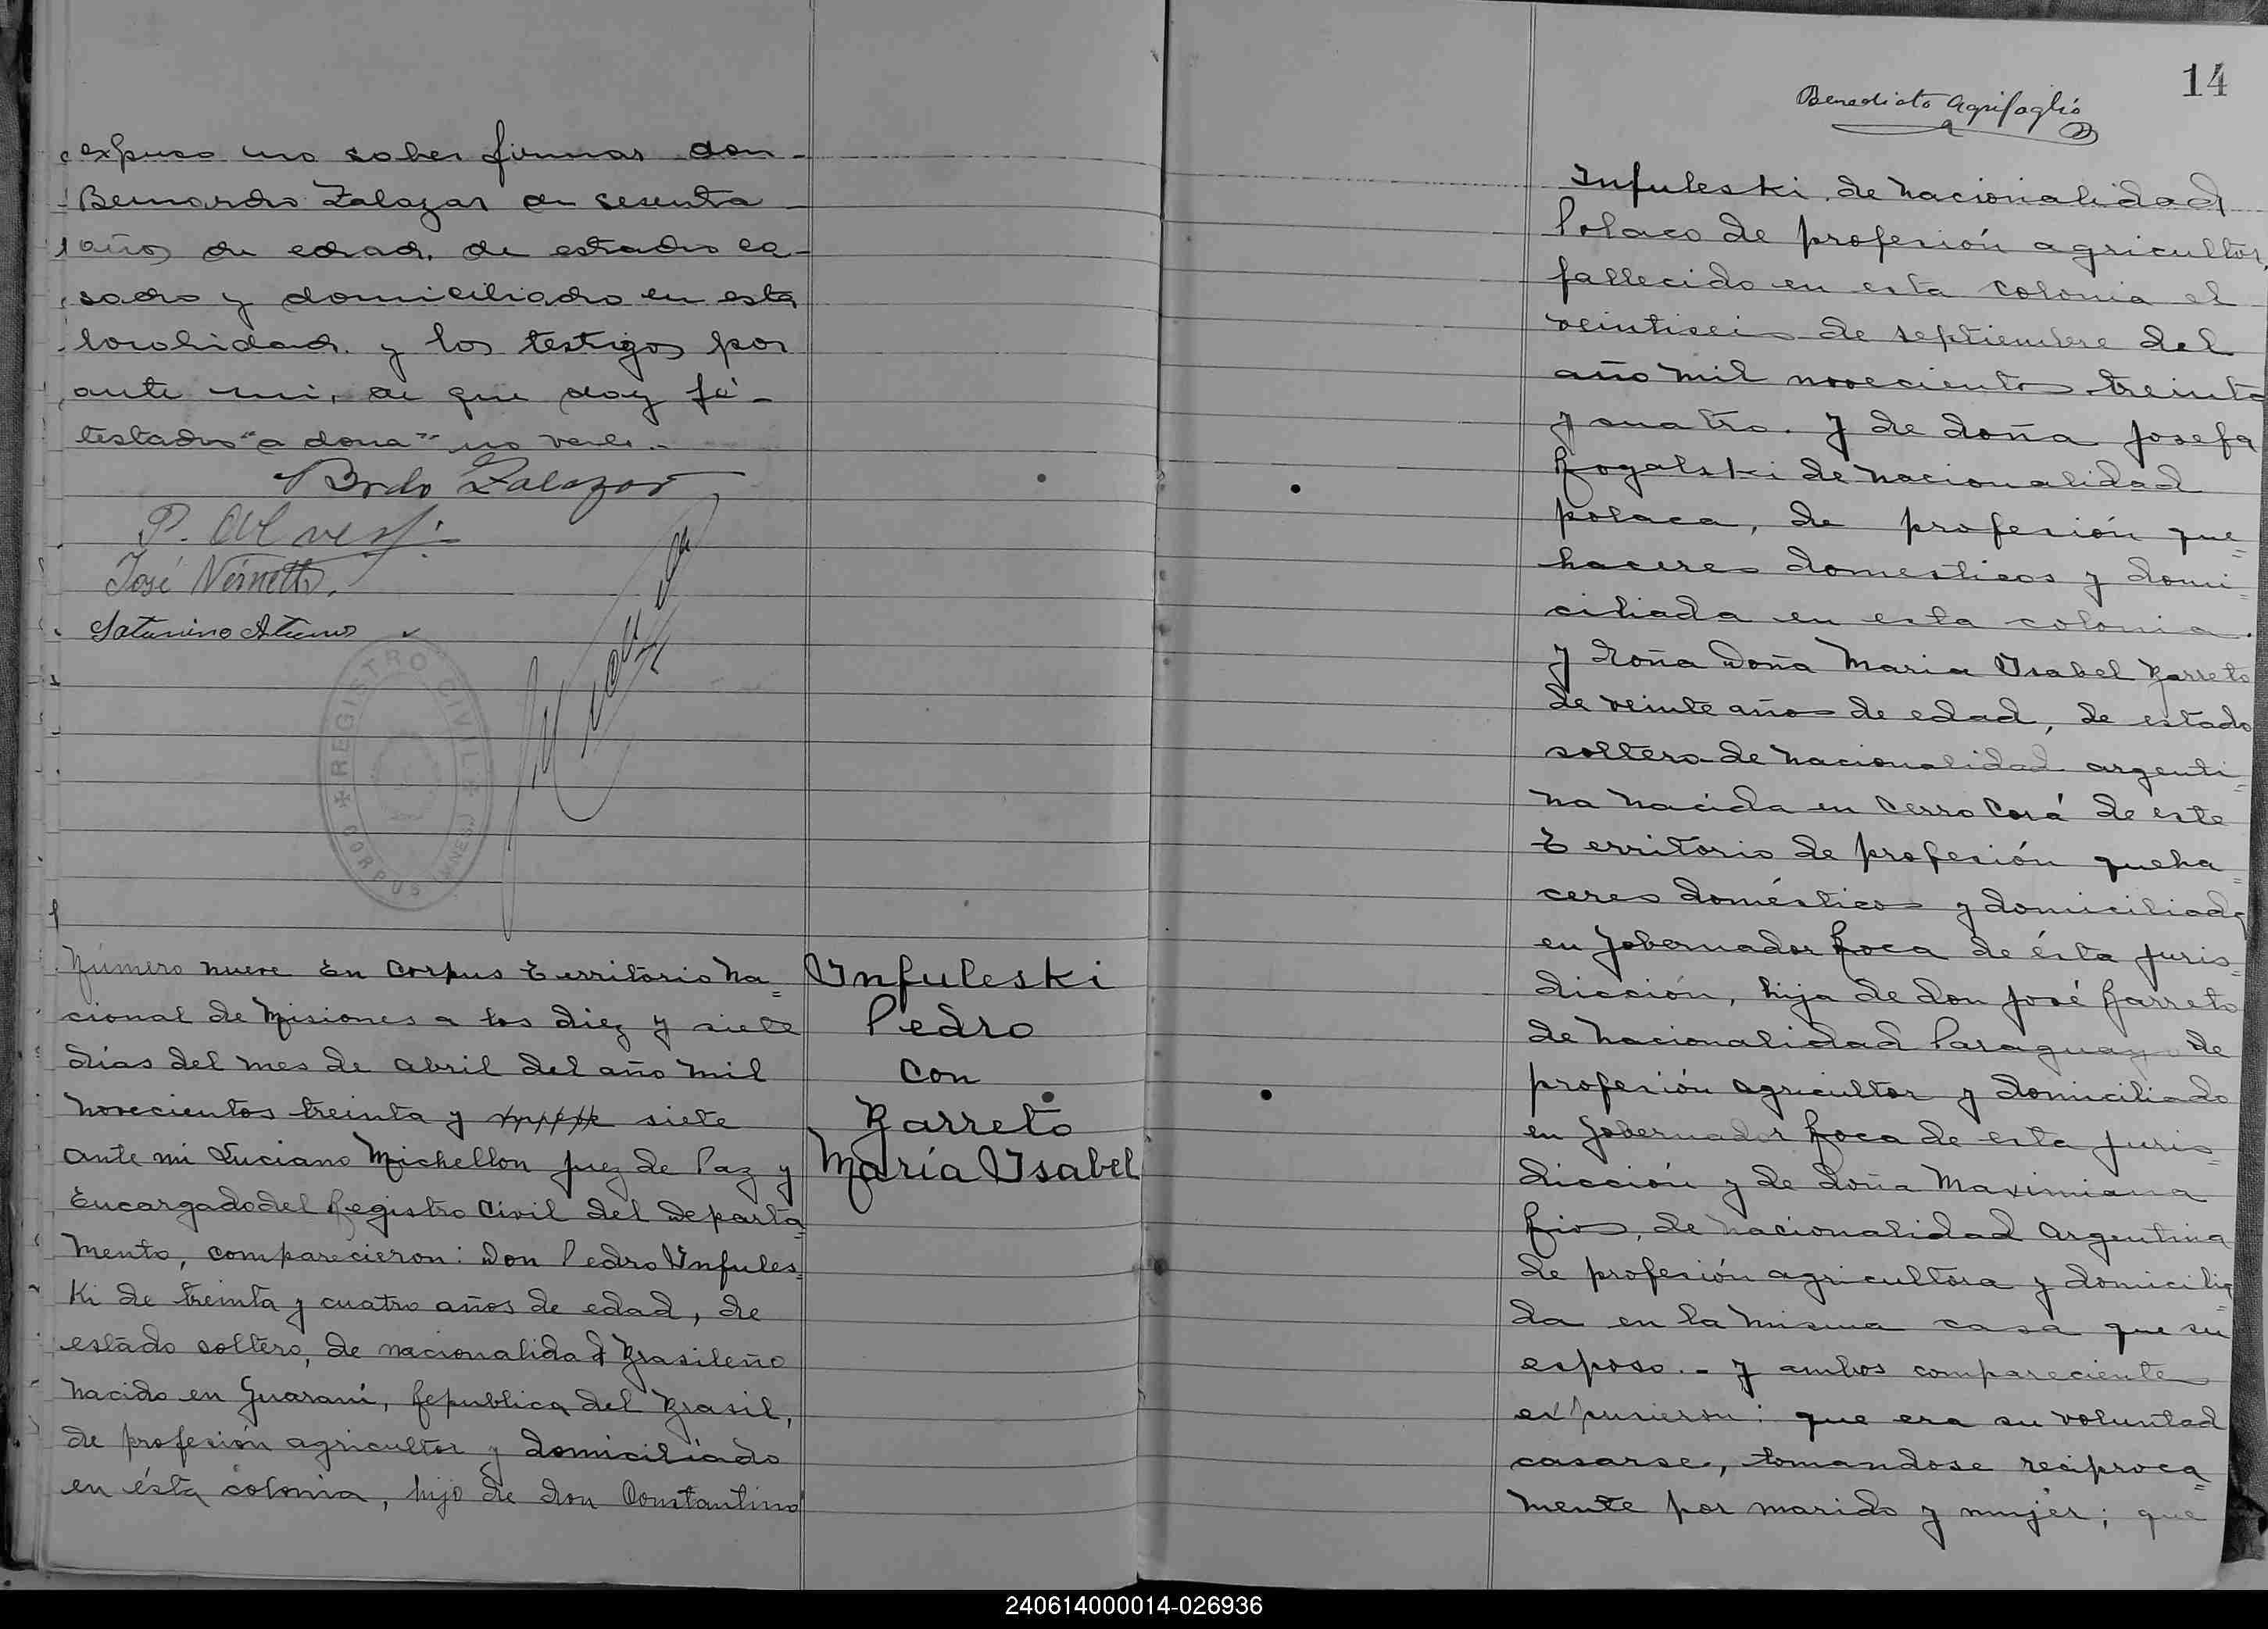 expuso no saber firmar don
Bernardo Zalazar de sesenta
años de edad, de estado ca-
sado y domiciliado en esta
localidad y los testigos por
ante mi, de que doy fé-
testado "a dona" no vale.-
Bndo Zalazar
José
Saturnino
REGISTRO CIVIL
CORPUS (MNES.)
Número nueve En Corpus Territorio Na=
cional de Misiones a los diez y siete
dias del mes de Abril del año mil
novecientos treinta y siete
ante mi Luciano Michellon Juez de Paz y
Encargado del Registro Civil del Departa=
mento, comparecieron: Don Pedro Infules=
ki de treinta y cuatro años de edad, de
estado soltero, de nacionalidad Brasileño
nacido en Guaraní, Republica del Brasil,
de profesión agricultor y domiciliado
en ésta colonia, hijo de don Constantino
Infuleski
Pedro
con
Barreto
María Isabel
14
Benedicto Agrifoglio
Infuleski de nacionalidad
Polaco de profesión agricultor,
fallecido en esta Colonia el
veintiseis de septiembre del
año mil novecientos treinta
y cuatro. Y de doña Josefa
Rogalski de nacionalidad
polaca, de profesión que=
haceres domesticos y domi=
ciliada en esta colonia.
Y doña Doña Maria Isabel Barreto
de veinte años de edad, de estado
soltera de nacionalidad argenti=
na nacida en Cerro Corá de este
Territorio de profesión queha=
ceres doméstico y domiciliada
en Gobernador Roca de ésta juris=
dicción, hija de don José Barreto
de nacionalidad Paraguayo de
profesión agricultor y domiciliado
en Gobernador Roca de esta juris=
dicción y de doña Maximiana
Rios, de nacionalidad Argentina
de profesión agricultora y domicilia=
da en la misma casa que su
esposo.- Y ambos compareciente
expusieron: que era su voluntad
casarse, tomandose reciproca=
mente por marido y mujer; que
240614000014-026936